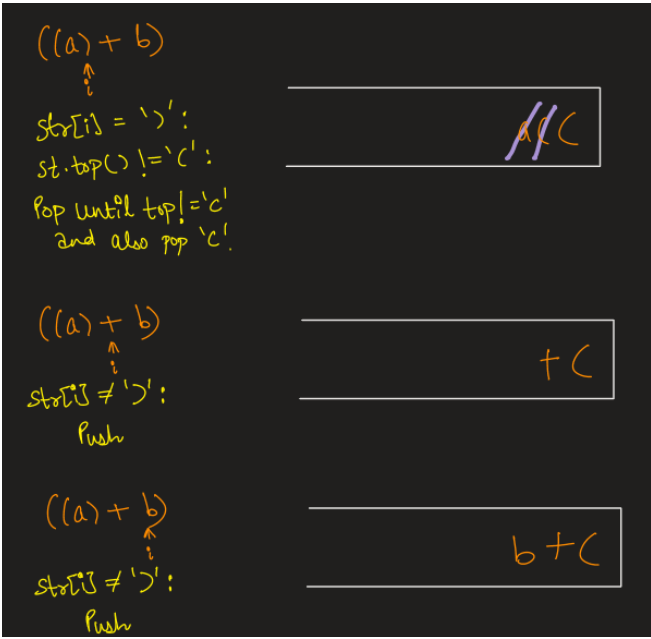 ((a) + b)
i
str[i] = ')':
st.top() != '(':
Pop until top! = '('
and also pop '('.
a ( (
((a) + b)
i
str[i] ≠ ')':
Push
+ (
((a) + b)
i
str[i] ≠ ')':
Push
b + (